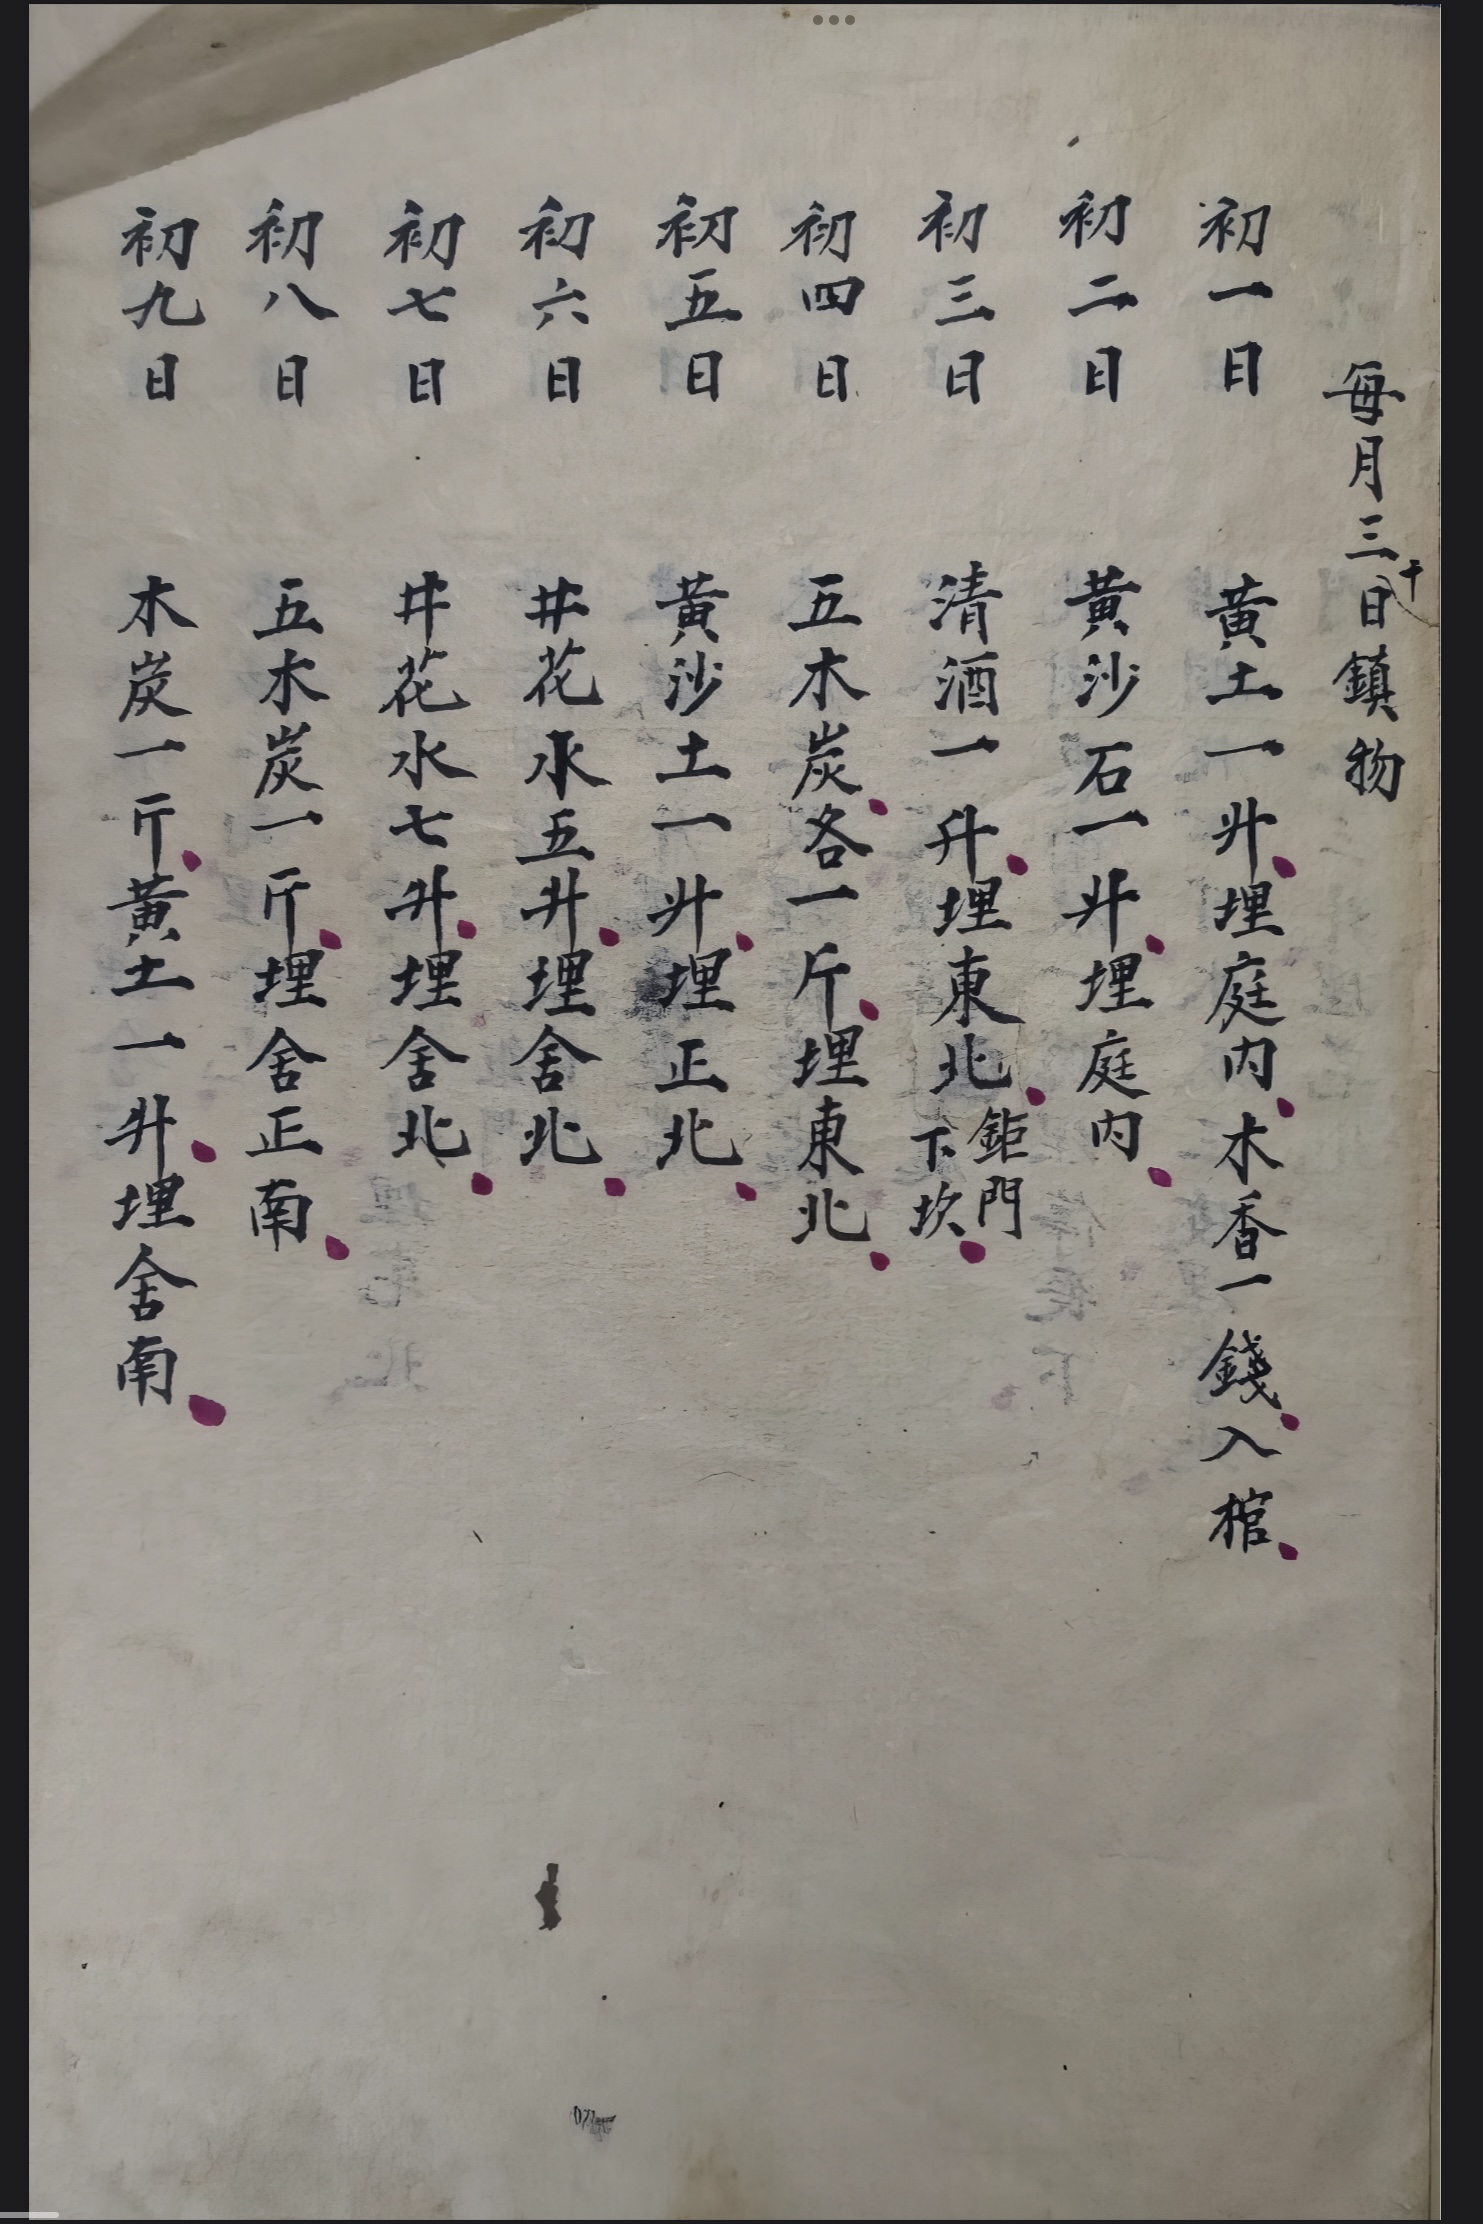 每月三十日鎮物
初一日 黃土一升埋庭內木香一錢入棺
初二日 黃沙石一升埋庭內
初三日 清酒一升埋東北鉅門下坎
初四日 五木炭各一斤埋東北
初五日 黃沙土一升埋正北
初六日 井花水五升埋舍北
初七日 井花水七升埋舍北
初八日 五木炭一斤埋舍正南
初九日 木炭一斤黃土一升埋舍南